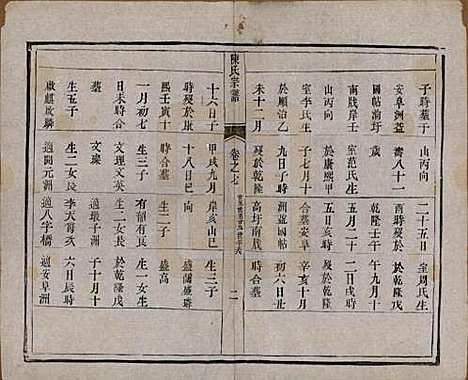 子時墓于　山丙向　二十五日　室周氏生
安阜洲益　壽八十一　酉時殁　於乾隆戊
國帖瀹圩　歲　乾隆壬　午九月十
南戧岸　室范氏生　五月二十　二日戌時
山丙向　於康熙甲　二日亥
室李氏生　子七月十　合墓安阜　辛亥十月
於順治乙　九日子時　洲益國帖　初六日丑
未十一月　殁於乾隆　高圩南戧　時合墓
陳氏宗譜
卷之七
二
十六日子　甲戌九月　岸亥山巳　生三子
時殁於康　十八日巳　向　盛蘭盛珠
熙壬寅十　時合墓　生二子　盛高
一月初七　生三子　有郁有良　生一女生
日未時合　文理文英　生二女長　於乾隆戊
墓　文燦　適墩子洲　子十月十
生五子　生二女長　李天霄次　六日辰時
啟麒啟麟　適開元洲　適八字橋　適安阜洲